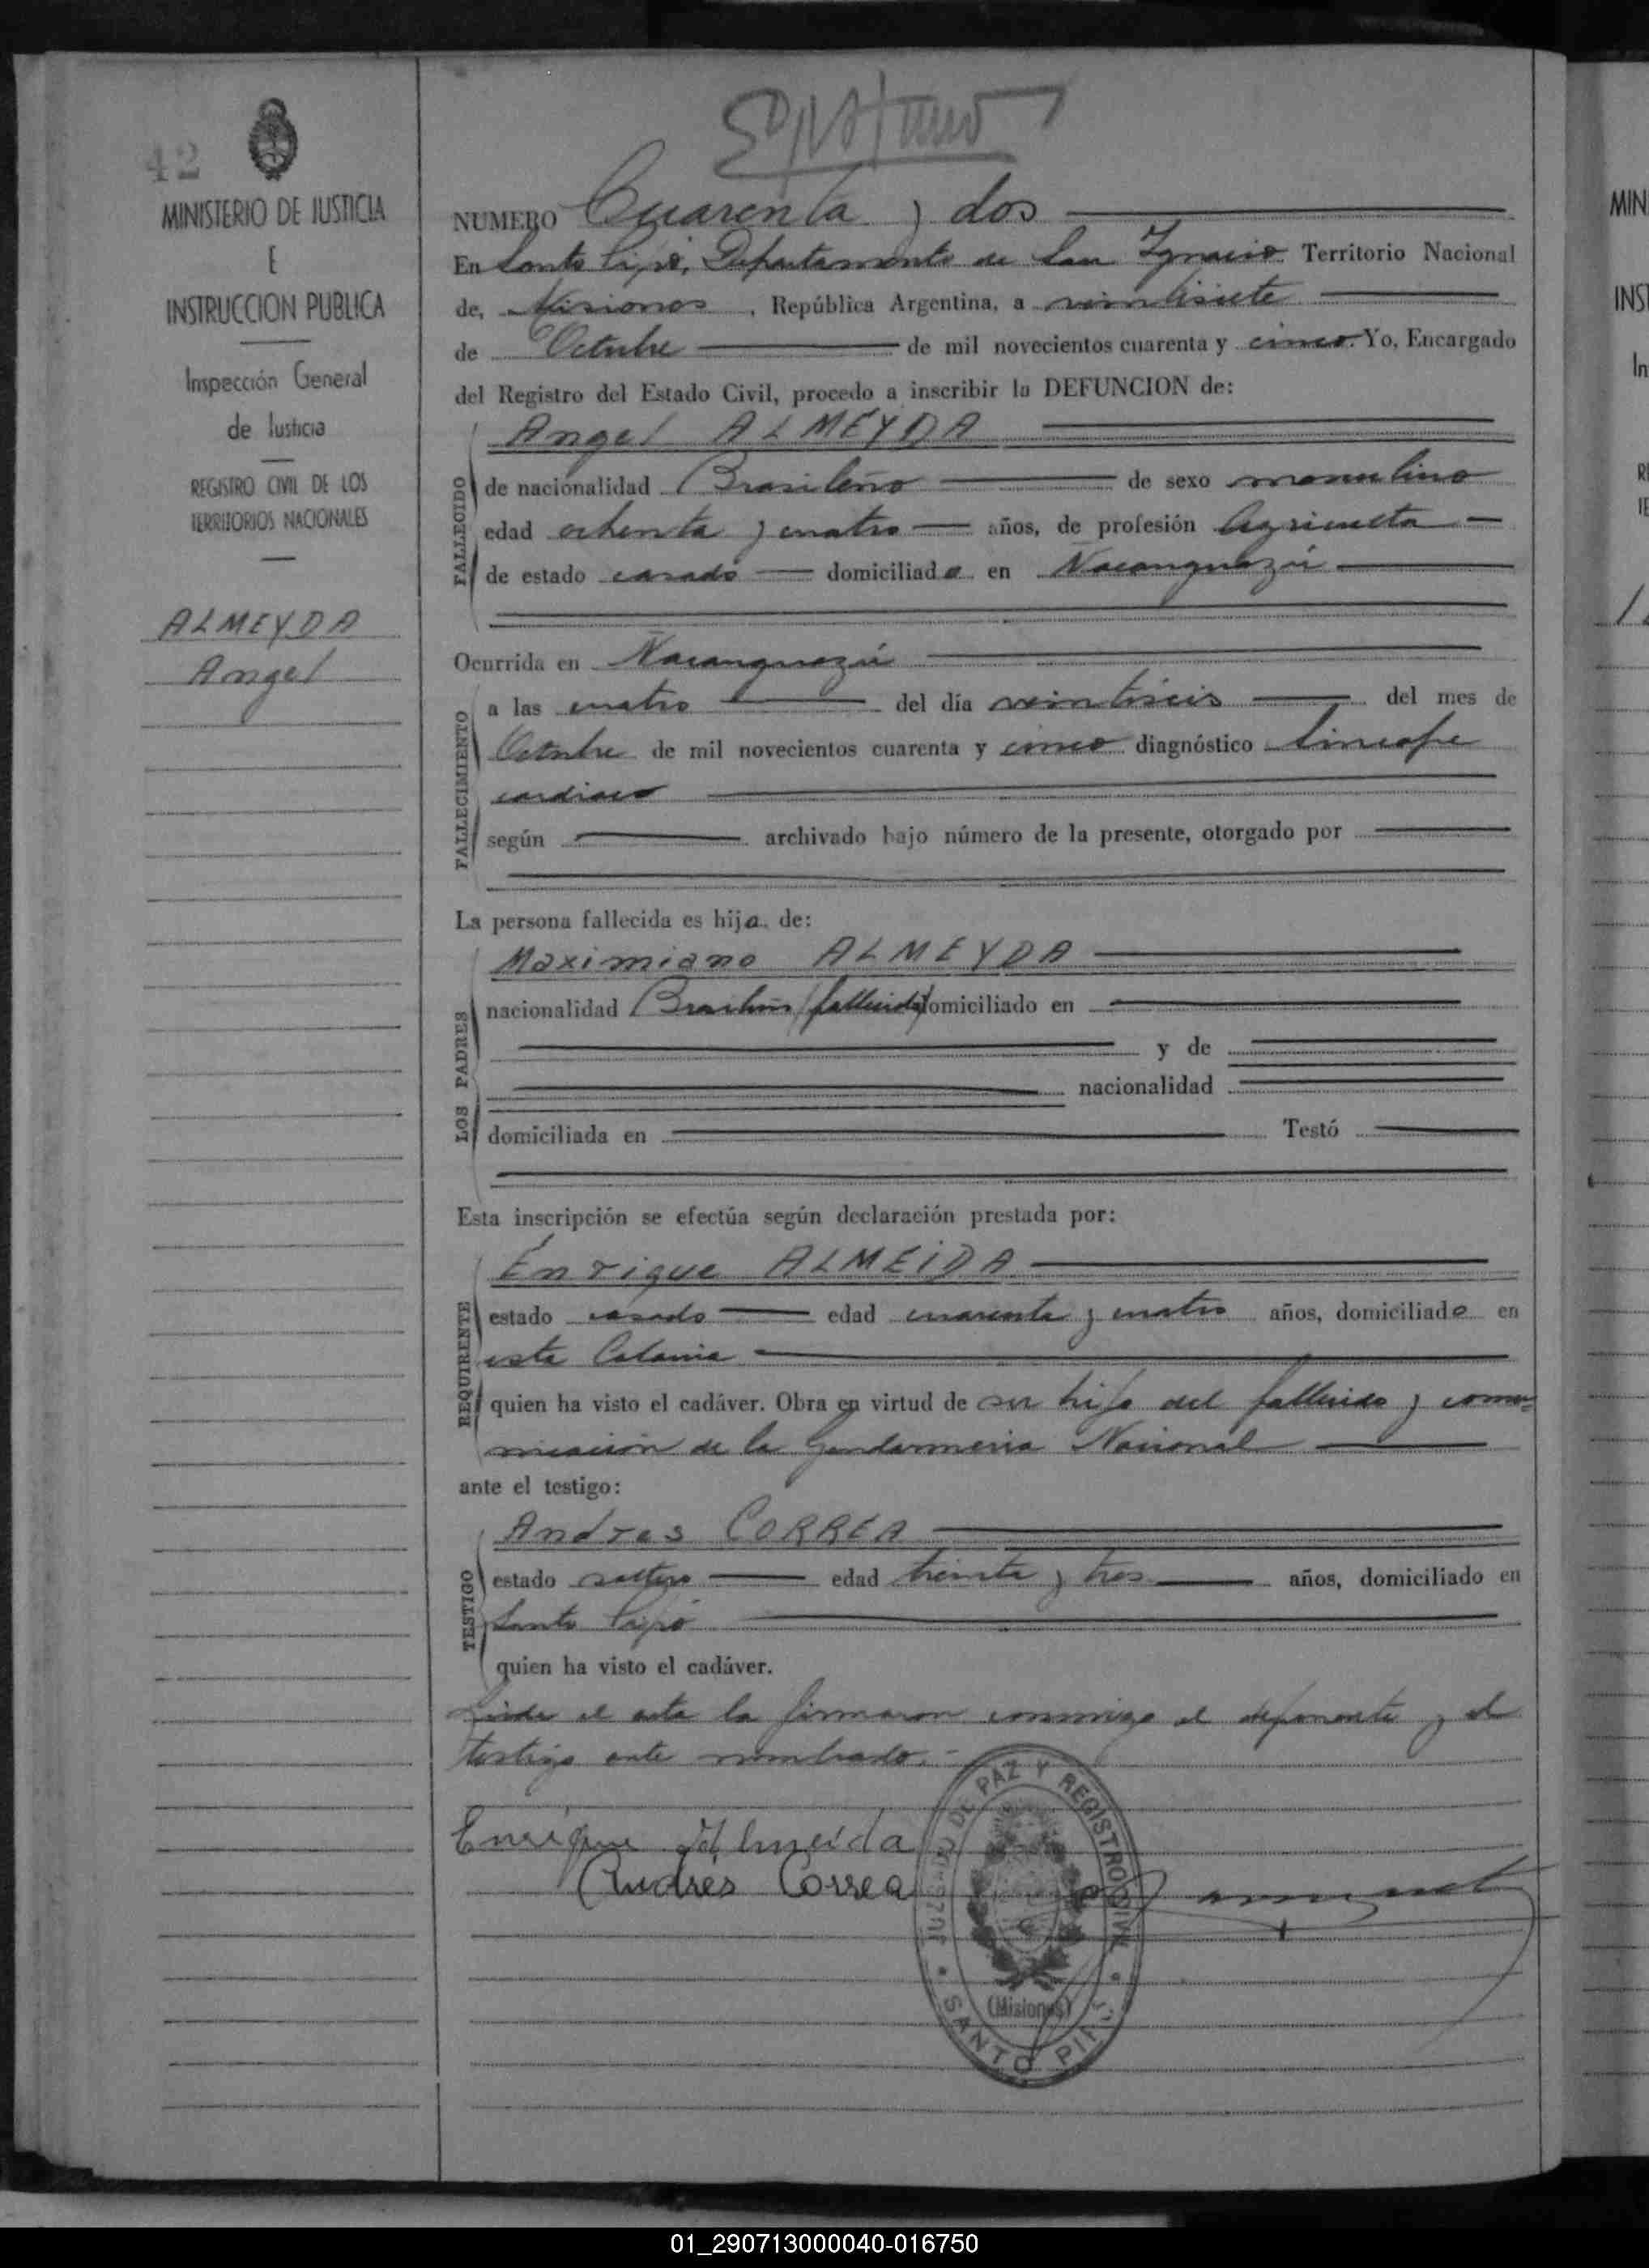 42
MINISTERIO DE JUSTICIA
E
INSTRUCCION PUBLICA
Inspección General
de Justicia
REGISTRO CIVIL DE LOS
TERRITORIOS NACIONALES
ALMEYDA
Angel
NUMERO Cuarenta y dos
En Santo Pipó, Departamento de San Ignacio Territorio Nacional
de, Misiones, República Argentina, a veintisiete
de Octubre de mil novecientos cuarenta y cinco. Yo, Encargado
del Registro del Estado Civil, procedo a inscribir la DEFUNCION de:
Angel ALMEYDA
FALLECIDO
de nacionalidad Brasileño de sexo masculino
edad ochenta y cuatro años, de profesión Agriculta
de estado casado domiciliado en Ñacanguazú
Ocurrida en Ñacanguazú
FALLECIMIENTO
a las cuatro del día veintiseis del mes de
Octubre de mil novecientos cuarenta y cinco diagnóstico Sincope
cardiaco
según archivado bajo número de la presente, otorgado por
La persona fallecida es hijo de:
LOS PADRES
Maximiano ALMEYDA
nacionalidad Brasileño (fallecido) domiciliado en
y de
nacionalidad
domiciliada en Testó
Esta inscripción se efectúa según declaración prestada por:
REQUIRENTE
Enrique ALMEIDA
estado casado edad cuarenta y cuatro años, domiciliado en
esta Colonia
quien ha visto el cadáver. Obra en virtud de ser hijo del fallecido y comu=
nicación de la Gendarmeria Nacional
ante el testigo:
TESTIGO
Andres CORREA
estado soltero edad treinta y tres años, domiciliado en
Santo Pipó
quien ha visto el cadáver.
Leida el acta la firmaron conmigo el deponente y el
testigo ante nombrado.-
Enrique Almeida
Andrés Correa
JUZGADO DE PAZ Y REGISTRO CIVIL
(Misiones)
SANTO PIPÓ
MIN
INS
In
01_290713000040-016750